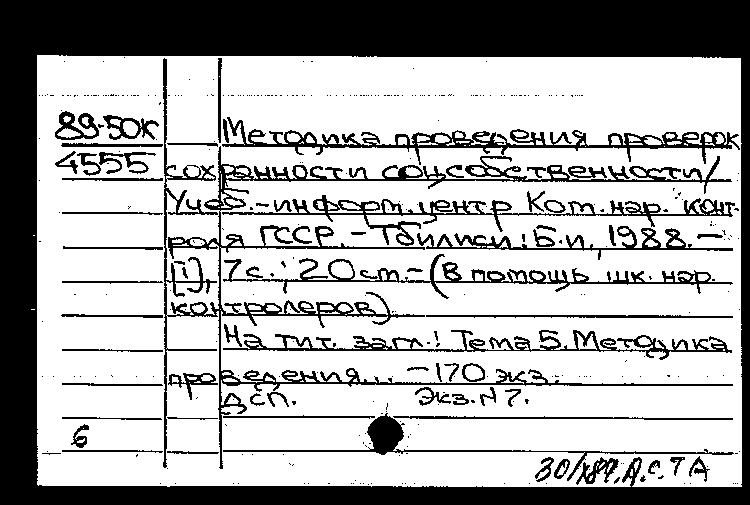 89-50К Методика проведения проверок
4555 сохранности соцсобственности/
Учеб.-информ.центр Ком.нар. конт-
роля ГССР. - Тбилиси: Б.и., 1988. -
[1], 7с.; 20 см. - (В помощь шк. нар.
контролеров)
На тит. загл.: Тема 5. Методика
проведения... - 170 экз.
ДСП. Экз. N 7.
6
30/